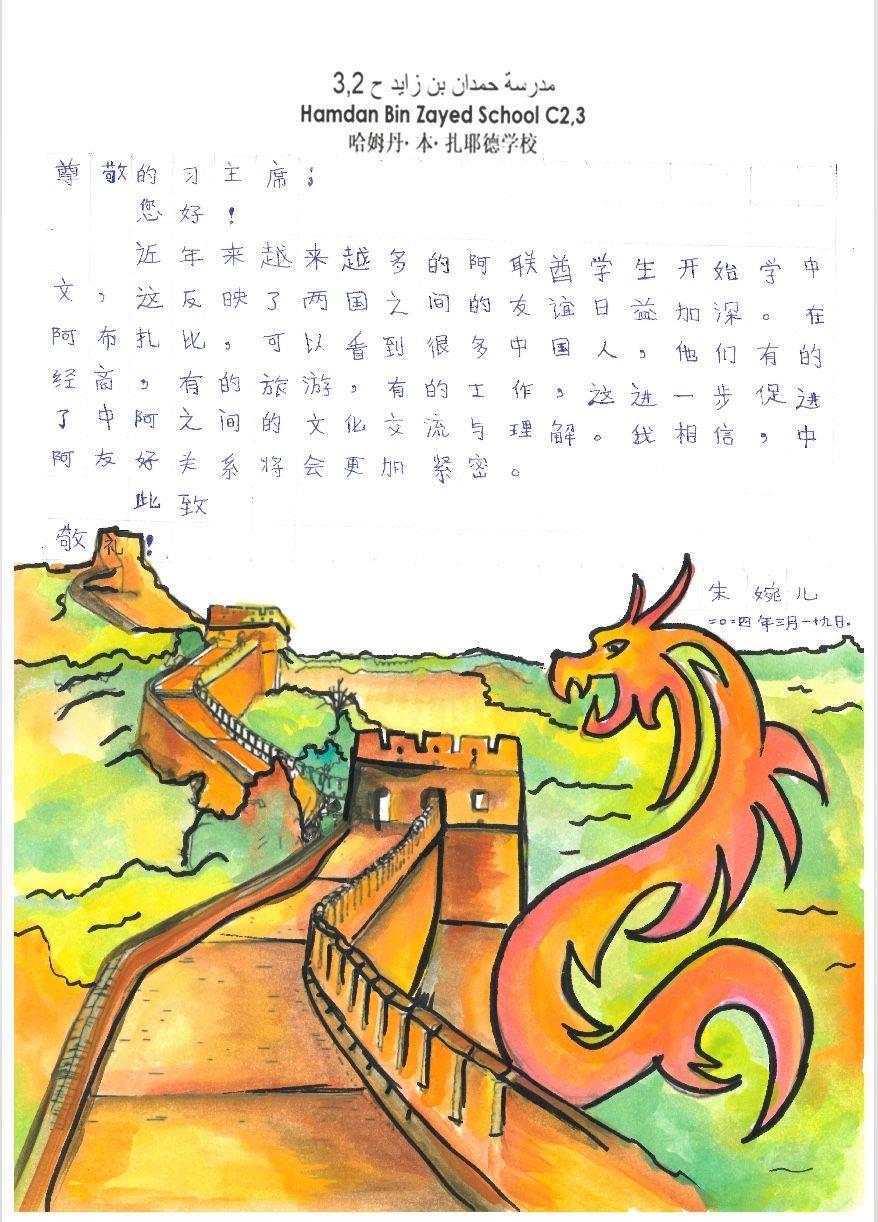 مدرسة حمدان بن زايد ح 3,2
Hamdan Bin Zayed School C2,3
哈姆丹·本·扎耶德学校
尊敬的习主席；
您好！
近年来越来越多的阿联酋学生开始学中
文，这反映了两国之间的友谊日益加深。在
阿布扎比，可以看到很多中国人，他们有的
经商，有的旅游，有的工作，这进一步促进
了中阿之间的文化交流与理解。我相信，中
阿友好关系将会更加紧密。
此致
敬礼！
朱婉儿
二〇二四年三月一十九日。